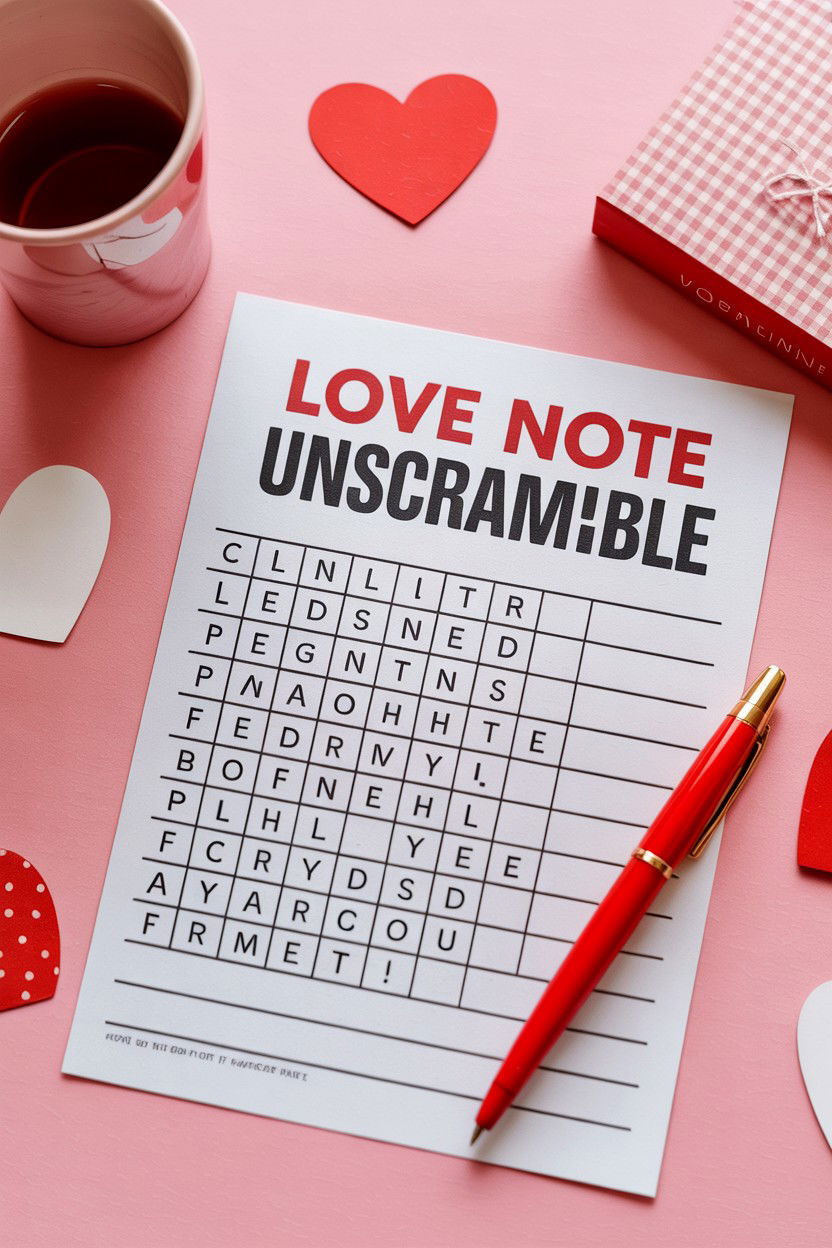 LOVE NOTE
UNSCRAM!BLE
C L N L I T R
L E D S N E D
P E G N T N S
P N A O H H T E
F E D R M Y I.
B O F N E H L
P L H L Y E E
F C R Y D S D
A Y A R C O U
F R M E T !